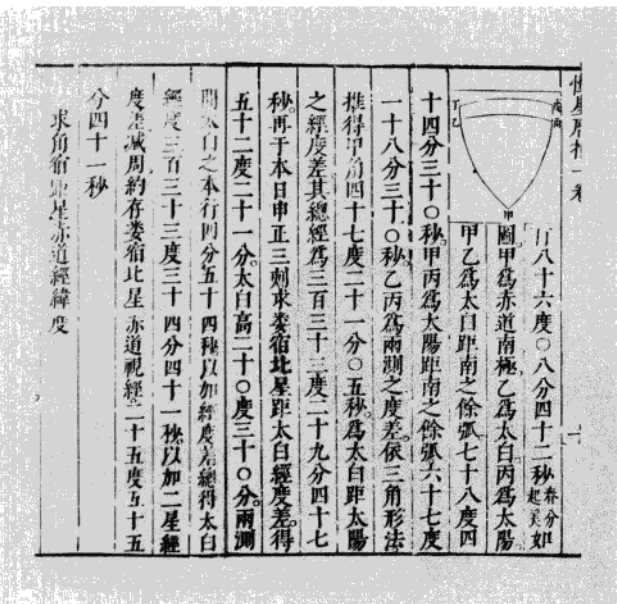 恆星曆指一卷
丁 戊
乙 丙
甲
八十六度〇八分四十二秒春分起算如
圖甲爲赤道南極乙爲太白丙爲太陽
甲乙爲太白距南之餘弧七十八度四
十四分三十〇秒甲丙爲太陽距南之餘弧六十七度
一十八分三十〇秒乙丙爲兩測之度差依三角形法
推得甲角四十七度二十一分〇五秒爲太白距太陽
之經度差其總經爲三百三十三度二十九分四十七
秒再于本日申正三刻求婁宿北星距太白經度差得
五十二度二十一分太白高二十〇度三十〇分兩測
間太白之本行四分五十四秒以加經度差總得太白
經度三百三十三度三十四分四十一秒以加二星經
度差減周約存婁宿北星赤道視經二十五度五十五
分四十一秒
求角宿距星赤道經緯度